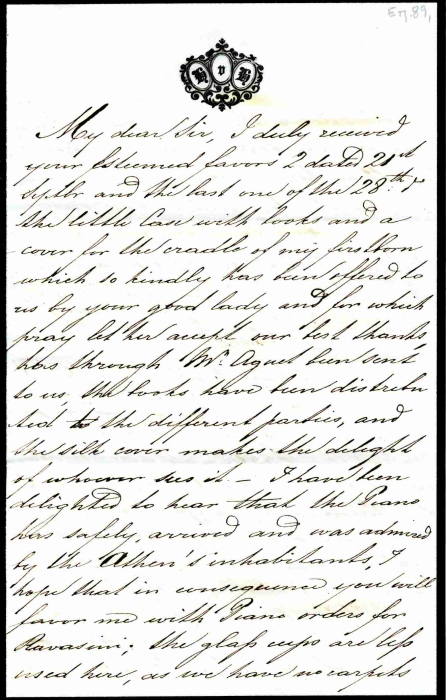 Em. 89,
H v H
My dear Sir, I duly received
your Esteemed favors 2 dated 21st
Septbr and the last one of the 28th &
the little Case with books and a
cover for the cradle of my firstborn
which so kindly has been offered to
us by your good lady and for which
pray let her accept our best thanks,
has through Mr. Aguet been sent
to us, the books have been distribu
ted to the different parties, and
the silk cover makes the delight
of whoever sees it – I have been
delighted to hear that the Piano
has safely arrived and was admired
by the Athen's inhabitants, I
hope that in consequence you will
favor me with Piano orders for
Ravasini; the glass cups are less
used here, as we have no carpets